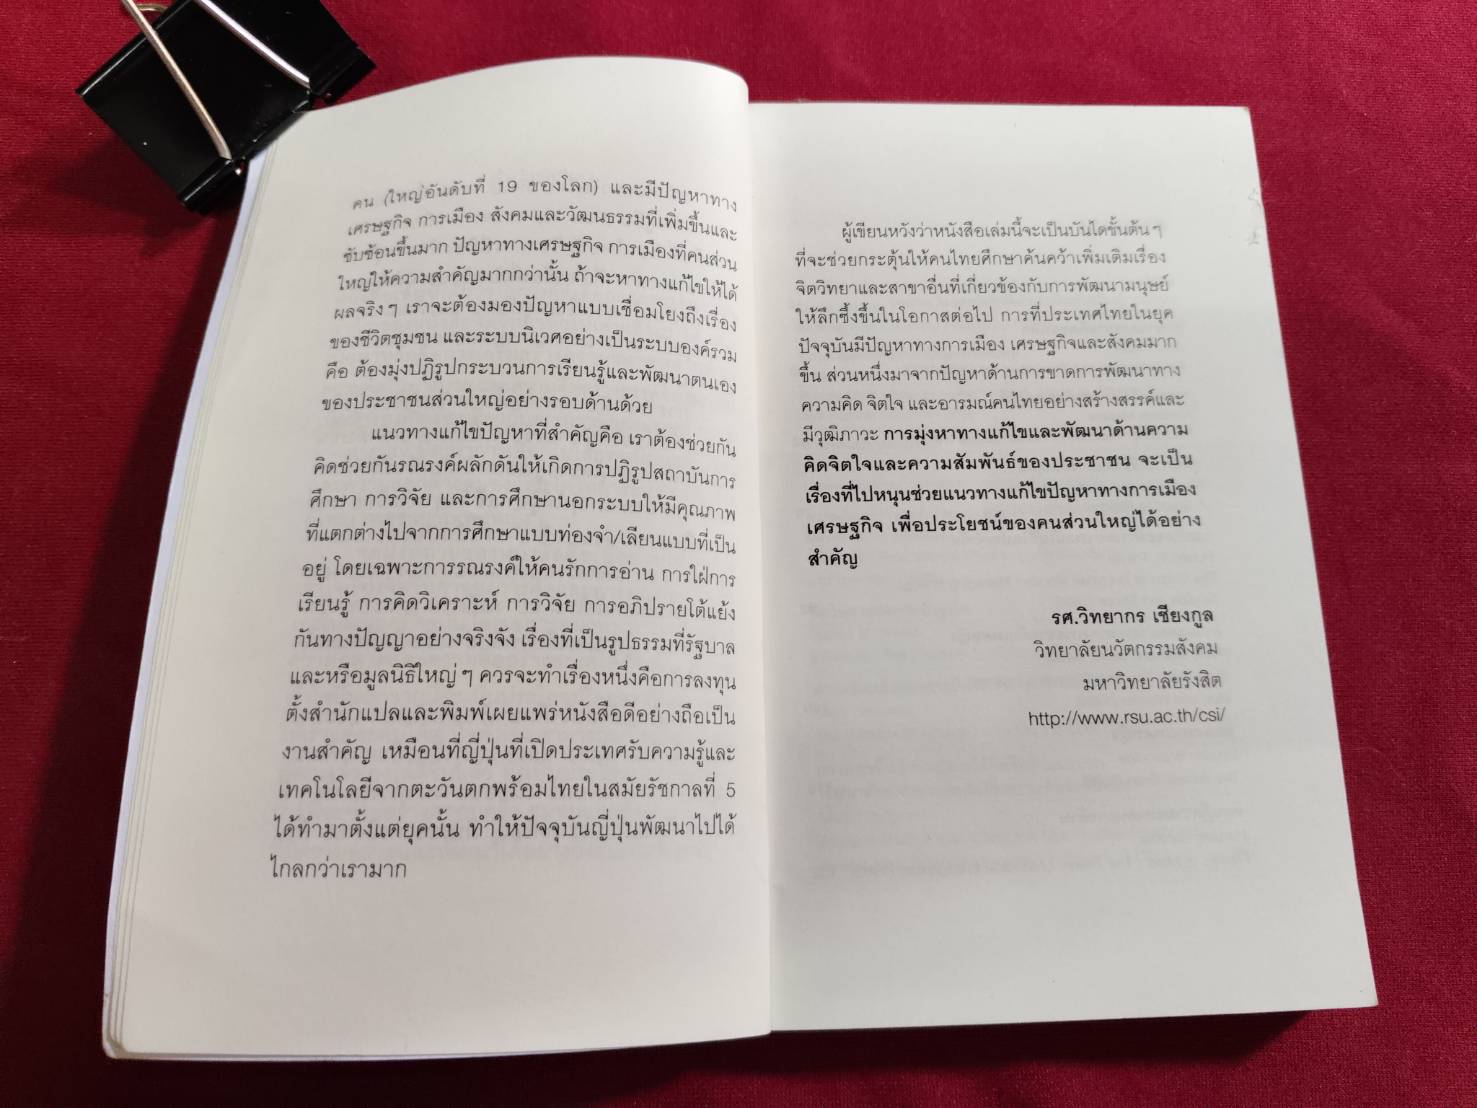 คน (ใหญ่อันดับที่ 19 ของโลก) และมีปัญหาทาง
เศรษฐกิจ การเมือง สังคมและวัฒนธรรมที่เพิ่มขึ้นและ
ซับซ้อนขึ้นมาก ปัญหาทางเศรษฐกิจ การเมืองที่คนส่วน
ใหญ่ให้ความสำคัญมากกว่านั้น ถ้าจะหาทางแก้ไขให้ได้
ผลจริงๆ เราจะต้องมองปัญหาแบบเชื่อมโยงถึงเรื่อง
ของชีวิตชุมชน และระบบนิเวศอย่างเป็นระบบองค์รวม
คือ ต้องมุ่งปฏิรูปกระบวนการเรียนรู้และพัฒนาตนเอง
ของประชาชนส่วนใหญ่อย่างรอบด้านด้วย
แนวทางแก้ไขปัญหาที่สำคัญคือ เราต้องช่วยกัน
คิดช่วยกันรณรงค์ผลักดันให้เกิดการปฏิรูปสถาบันการ
ศึกษา การวิจัย และการศึกษานอกระบบให้มีคุณภาพ
ที่แตกต่างไปจากการศึกษาแบบท่องจำ/เลียนแบบที่เป็น
อยู่ โดยเฉพาะการรณรงค์ให้คนรักการอ่าน การใฝ่การ
เรียนรู้ การคิดวิเคราะห์ การวิจัย การอภิปรายโต้แย้ง
กันทางปัญญาอย่างจริงจัง เรื่องที่เป็นรูปธรรมที่รัฐบาล
และหรือมูลนิธิใหญ่ๆ ควรจะทำเรื่องหนึ่งคือการลงทุน
ตั้งสำนักแปลและพิมพ์เผยแพร่หนังสือดีอย่างถือเป็น
งานสำคัญ เหมือนที่ญี่ปุ่นที่เปิดประเทศรับความรู้และ
เทคโนโลยีจากตะวันตกพร้อมไทยในสมัยรัชกาลที่ 5
ได้ทำมาตั้งแต่ยุคนั้น ทำให้ปัจจุบันญี่ปุ่นพัฒนาไปได้
ไกลกว่าเรามาก
ผู้เขียนหวังว่าหนังสือเล่มนี้จะเป็นบันไดขั้นต้นๆ
ที่จะช่วยกระตุ้นให้คนไทยศึกษาค้นคว้าเพิ่มเติมเรื่อง
จิตวิทยาและสาขาอื่นที่เกี่ยวข้องกับการพัฒนามนุษย์
ให้ลึกซึ้งขึ้นในโอกาสต่อไป การที่ประเทศไทยในยุค
ปัจจุบันมีปัญหาทางการเมือง เศรษฐกิจและสังคมมาก
ขึ้น ส่วนหนึ่งมาจากปัญหาด้านการขาดการพัฒนาทาง
ความคิด จิตใจ และอารมณ์คนไทยอย่างสร้างสรรค์และ
มีวุฒิภาวะ การมุ่งหาทางแก้ไขและพัฒนาด้านความ
คิดจิตใจและความสัมพันธ์ของประชาชน จะเป็น
เรื่องที่ไปหนุนช่วยแนวทางแก้ไขปัญหาทางการเมือง
เศรษฐกิจ เพื่อประโยชน์ของคนส่วนใหญ่ได้อย่าง
สำคัญ
รศ.วิทยากร เชียงกูล
วิทยาลัยนวัตกรรมสังคม
มหาวิทยาลัยรังสิต
http://www.rsu.ac.th/csi/